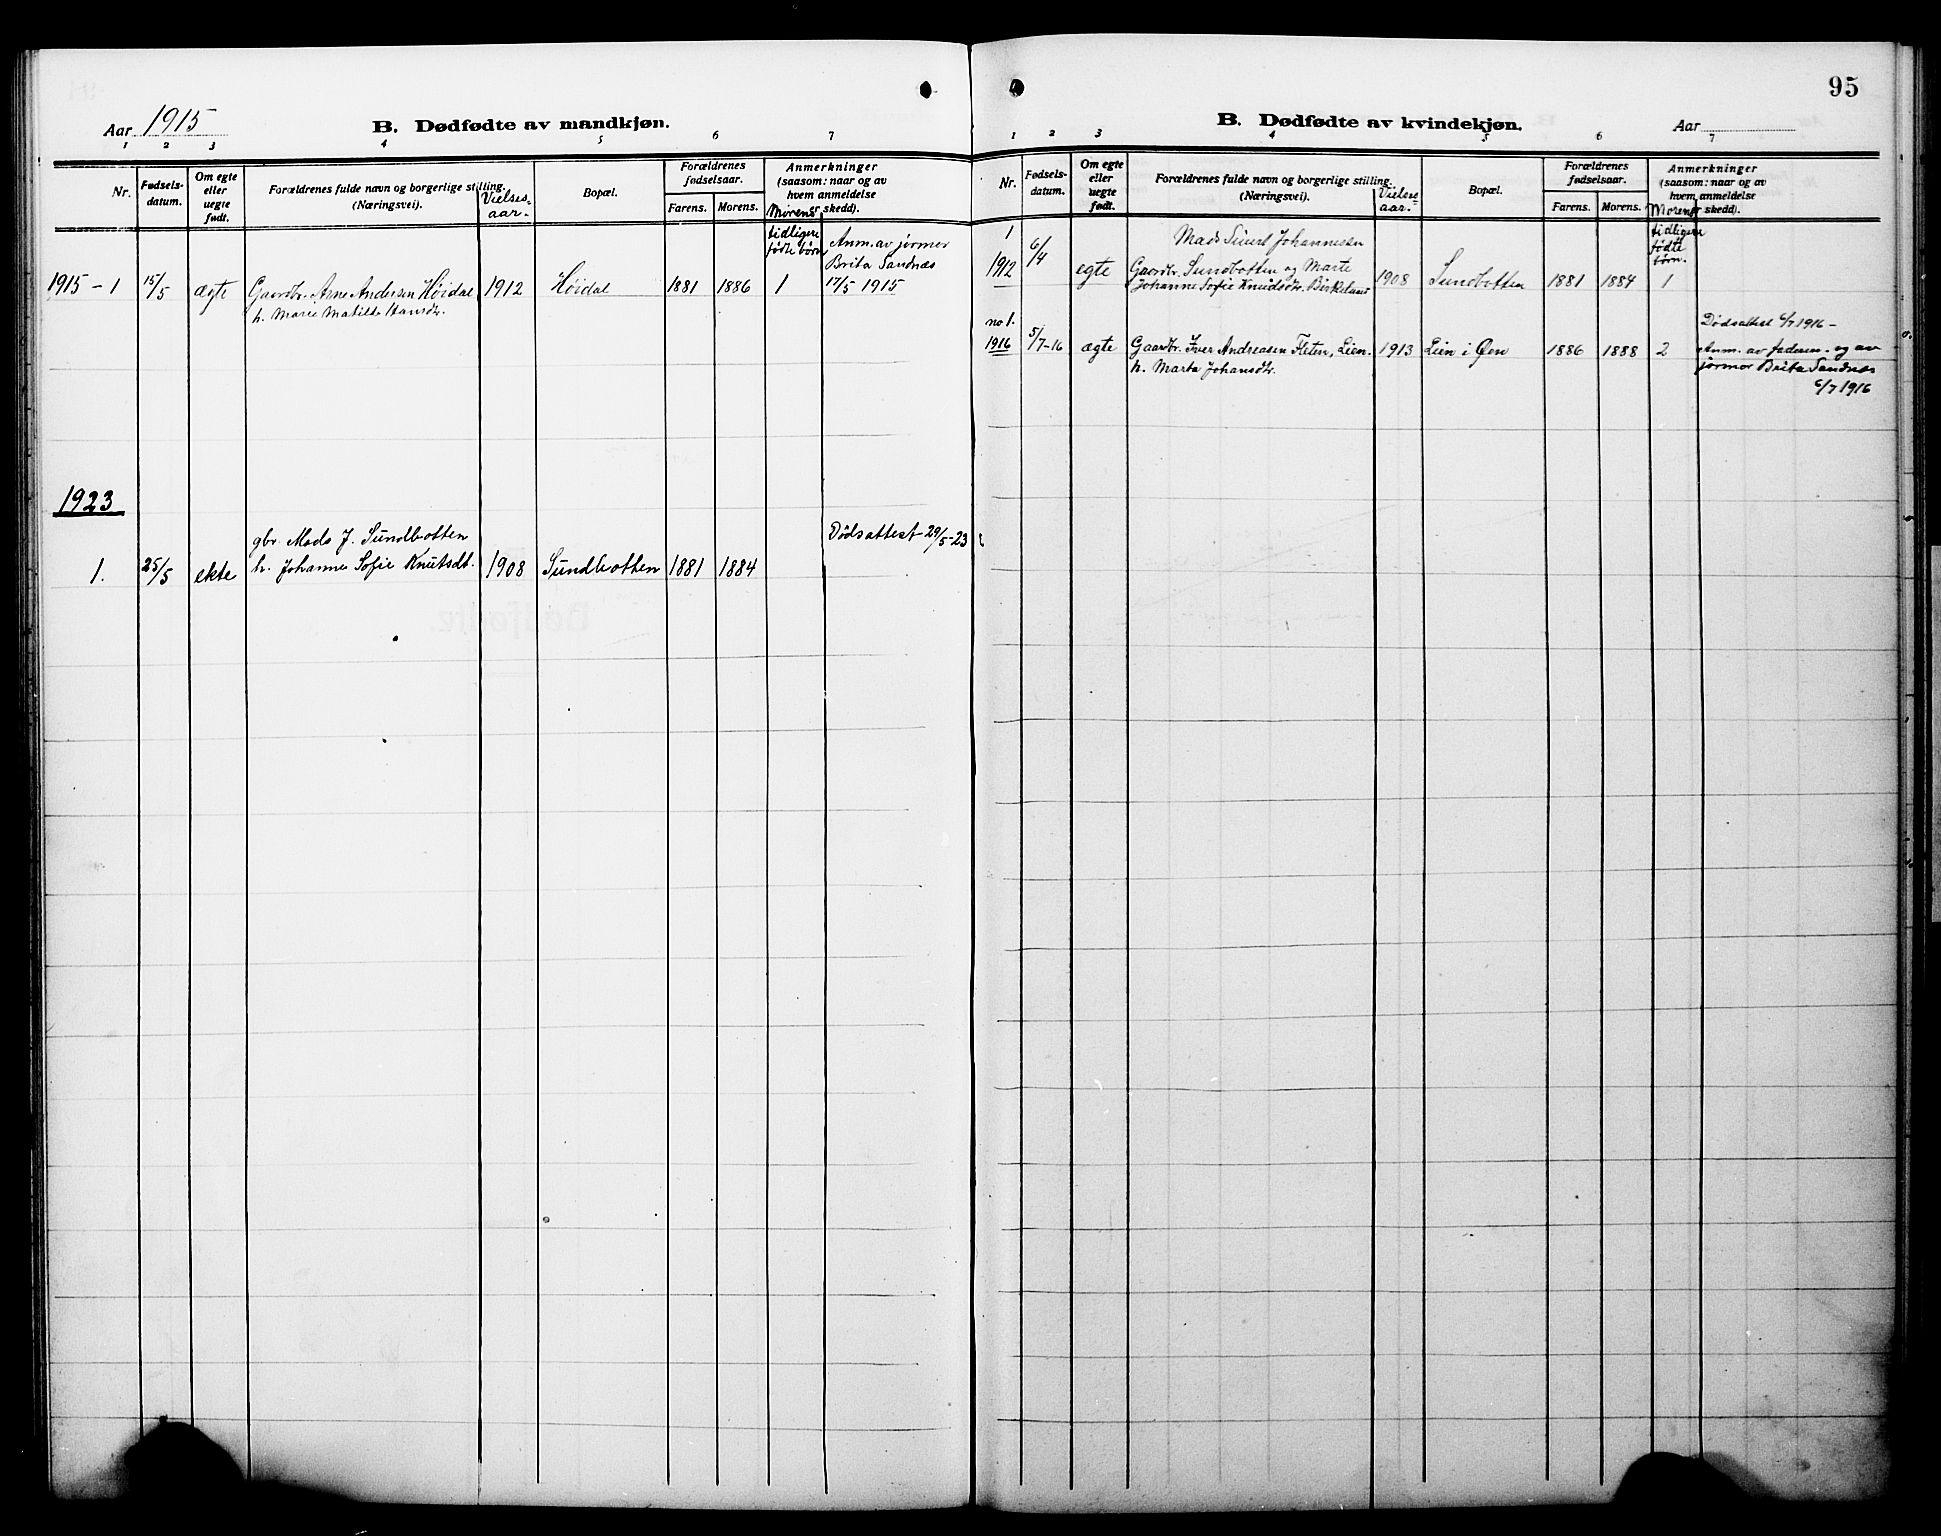 Aar 1915
B. Dødfødte av mandkjøn.
1 2 3 4 5 6 7
Nr.
Fødsels-
datum.
Om egte
eller
uegte
født.
Forældrenes fulde navn og borgerlige stilling.
(Næringsvei).
Vielses-
aar.
Bopæl.
Forældrenes
fødselsaar.
Farens. Morens.
Anmerkninger
(saasom: naar og av
hvem anmeldelse
er skedd).
Morens
tidligere
fødte børn
1915 - 1
15/5
ægte
Gaardbr. Arne Andersen Høidal
h. Marie Matilde Hansdtr.
1912
Høidal
1881
1886
1
Anm. av jormor
Brita Sandnæs
17/5 1915
1923
1.
25/5
ekte
gbr Mads J. Sundbotten
h. Johanne Sofie Knutsdt.
1908
Sundbotten
1881
1884
Dødsattest 29/5-23
95
B. Dødfødte av kvindekjøn.
Aar
1 2 3 4 5 6 7
Nr.
Fødsels-
datum.
Om egte
eller
uegte
født.
Forældrenes fulde navn og borgerlige stilling.
(Næringsvei).
Vielses-
aar.
Bopæl.
Forældrenes
fødselsaar.
Farens. Morens.
Anmerkninger
(saasom: naar og av
hvem anmeldelse
er skedd).
Morens
tidligere
fødte
børn.
1
1912
6/4
egte
Mads Johannessen
Gaardbr. Sundbotten og Marte
Johanne Sofie Knudsdtr. Birkeland
1908
Sundbotten
1881
1884
1
no 1.
1916
5/7-16
ægte
Gaardbr. Iver Andreasen Fleten, Lien.
h. Marta Johansdtr.
1913
Lien i Øen
1886
1888
2
Dødsattest 6/7 1916 -
Anm. av faderen - og av
jormor Brita Sandnæs
6/7 1916